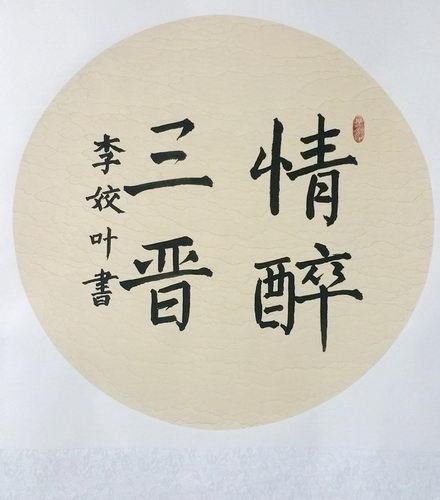 情醉
三晋
李姣叶書